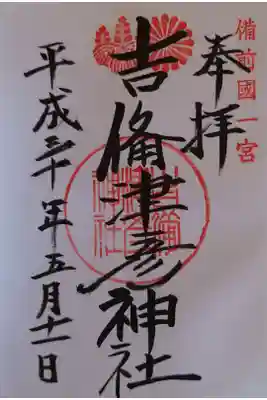 備前國一宮
奉拝
吉備津彦神社
平成三十年五月十一日